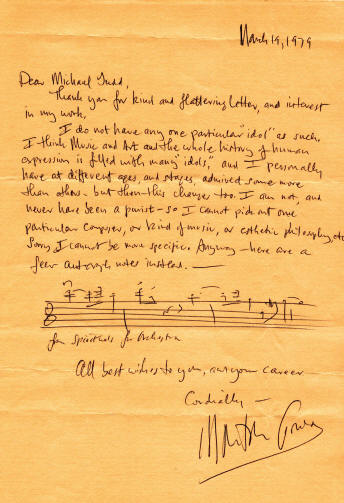 March 19, 1979
Dear Michael Judd,
Thank you for kind and flattering letter, and interest
in my work.
I do not have any one particular "idol" as such.
I think Music and Art and the whole history of human
expression is filled with many "idols," and I personally
have at different ages, and stages, admired some more
than others - but then this changes too. I am not, and
never have been a purist - so I cannot pick out one
particular composer, or kind of music, or esthetic philosophy, etc.
Sorry I cannot be more specific. Anyway - here are a
few autograph notes instead. —
for Spirituals for Orchestra
All best wishes to you, and your career
Cordially —
Morton Gould